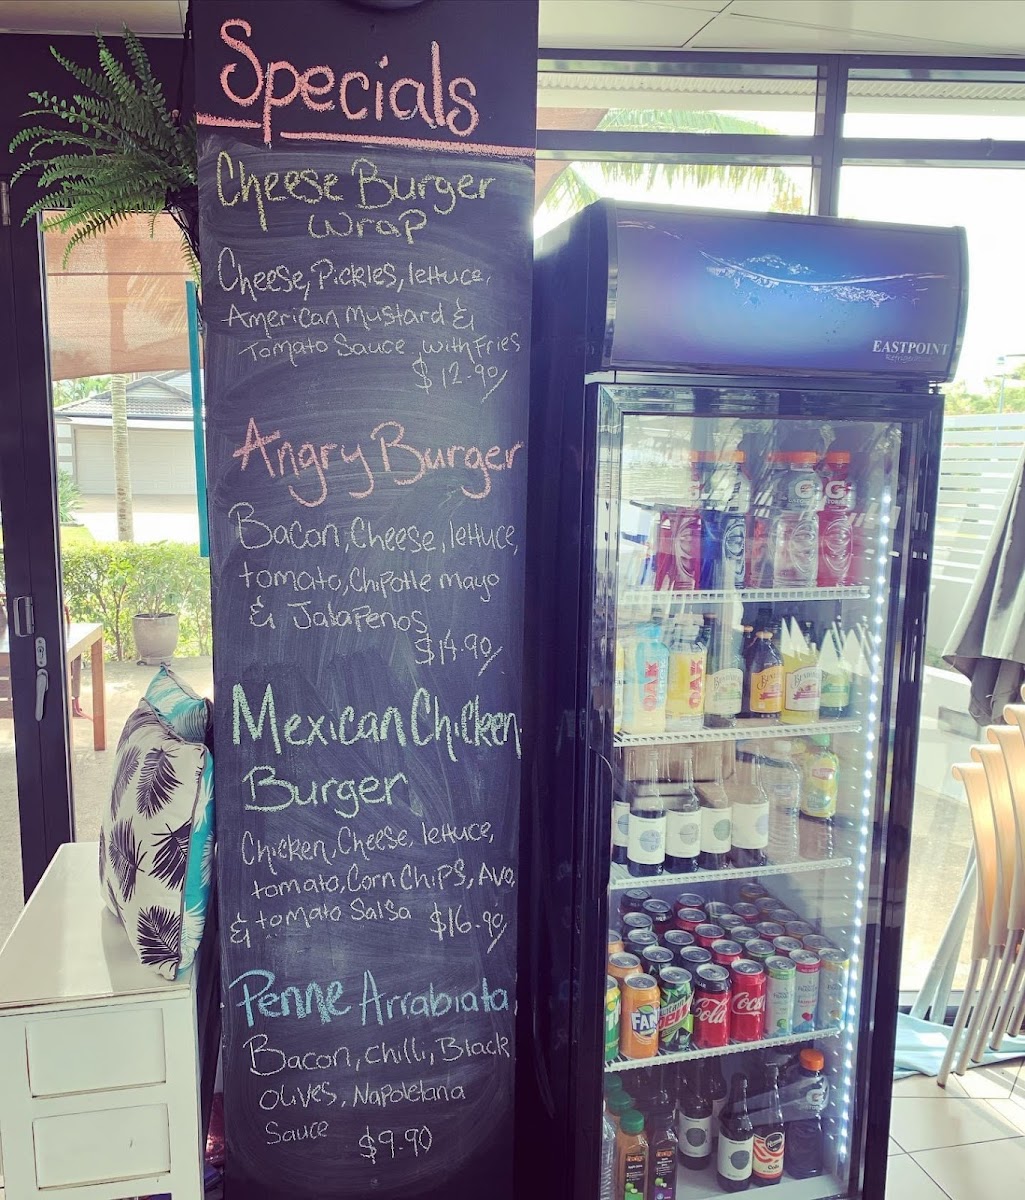 Specials
Cheese Burger
Wrap
Cheese, Pickles, lettuce,
American Mustard &
Tomato Sauce with Fries
$12.90/
Angry Burger
Bacon, Cheese, lettuce,
tomato, Chipotle mayo
& Jalapenos
$14.90/
Mexican Chicken
Burger
Chicken, Cheese, lettuce,
tomato, Corn Chips, Avo,
& tomato Salsa $16.90/
Penne Arrabiata
Bacon, chilli, Black
olives, Napoletana
Sauce
$9.90
EASTPOINT
Refrigeration
G
G
OAK
OAK
FAN
Coca
Cola